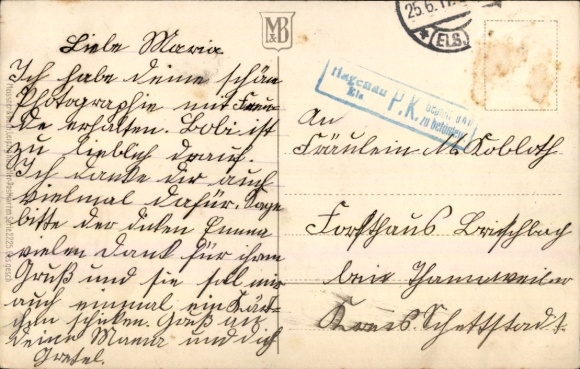 Liebe Maria
Ich habe deine schön
Photographie mit Freu
de erhalten. Bobi ist
zu lieblich drauf.
Ich danke dir auch
vielmal dafür. Sage
bitte der dicken Emma
vielen Dank für ihren
Gruß und sie sol mir
auch einmal ein Kärt-
chen schicken. Gruß an
deine Mamma und dich
Gretel.
M&B
25.6.17.
(ELS.)
Hagenau
Els
P.K.
zu befördern
An
Fräulein M. Kobloth
Forsthaus
bei Thannweiler
Kreis Schettstadt